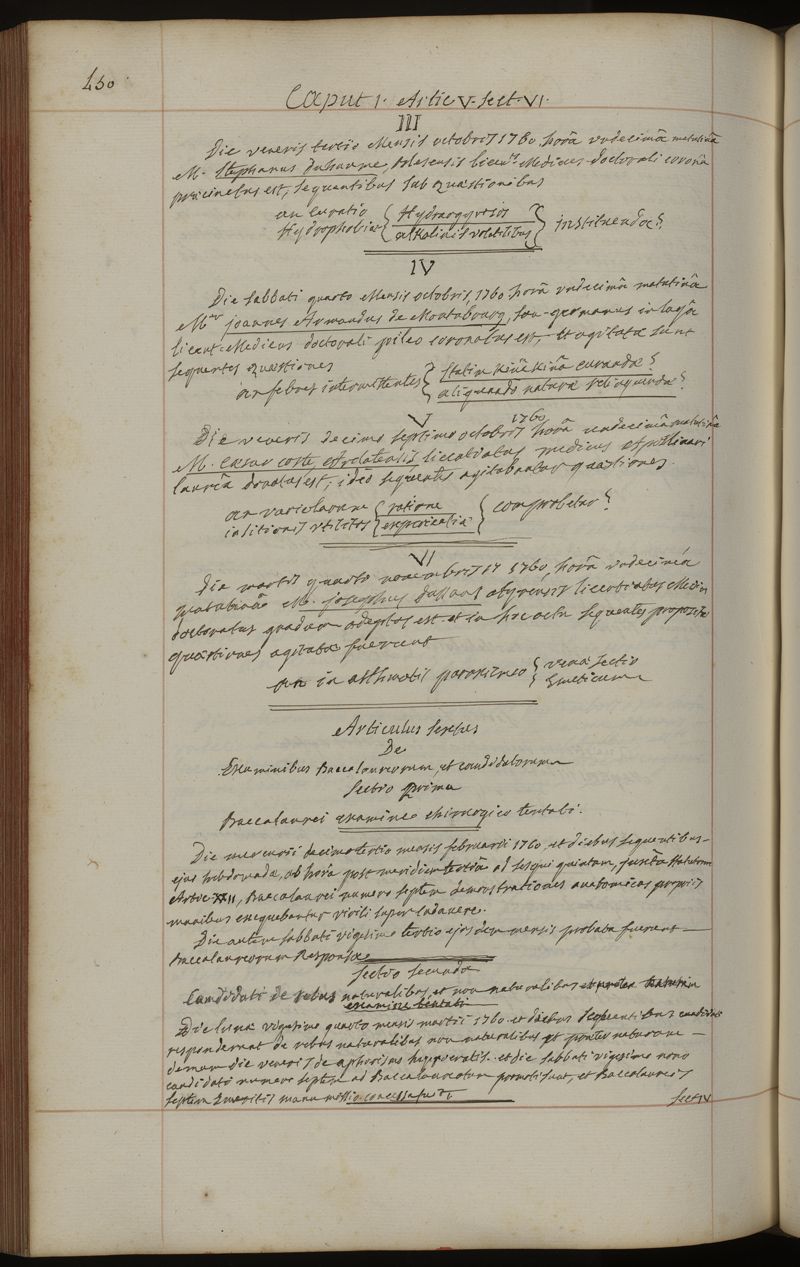 450
Caput I. Artic V. sect. VI.
III
Die veneris tertiâ Mensis octobris 1760 horâ undecimâ matutinâ
M. Stephanus duhaume, licent. Medicus doctorali coronâ
præcinctus est, sequentibus sub quæstionibus
an curatio { Hydrargyrosis } instituenda?
Hydrophobiæ { alkalinis volatilibus }
IV
Die sabbati quarto Mensis octobris, 1760 horâ undecimâ matutinâ
Mer joannes Armandus de Montabourg, san-germanus in layâ
licent. Medicus doctorali pileo coronatus est, et agitatæ sunt
sequentes quæstiones
an febres intermittentes { statim kinâ kinâ curandæ?
aliquando naturæ relinquendæ?
V
Die veneris decimo septimo octobris 1760 horâ undecimâ matutinâ
M. Cæsar coste, Arelatensis licentiatus medicus Apollinari
laureâ donatus est, ideò sequentes agitabantur quæstiones
an variolarum { ratione } comprobetur?
insitionis utilitas { experientia }
VI
Die martis quarto novembris 1760, horâ undecimâ
matutinâ M. josephus licentiatus Medicus
doctoratus gradum adeptus est et in hoc actu sequentes propositæ
quæstiones agitatæ fuerunt
an in asthmatis paroxismo { venæ sectio
Emeticum
Articulus sextus
De
Examinibus Baccalaureorum, et candidatorum
Sectio prima
Baccalaurei examine chirurgico tentati.
Die mercurii decimotertio mensis februarii 1760, et diebus sequentibus
ejus hebdomadæ, ab horâ post meridiem tertiâ ad sesqui quintam, juxta statutum
Artic. XXII, Baccalaurei numero septem demonstrationes anatomicas propriis
manibus exequebantur virili super Cadavere.
Die autem sabbati vigesimo tertio ejusdem mensis probata fuerunt
Baccalaureorum Responsa
Sectio secunda
Candidati de rebus naturalibus, et non naturalibus et præter naturam
examine tentati
Die lunæ vigesimo quarto mensis martii 1760 et diebus sequentibus candidati
responderunt de rebus naturalibus non naturalibus et præter naturam
demum die veneris de aphorismis hyppocratis. et die sabbati vigesimo nono
candidati numero septem ad Baccalaureatum promoti sunt, et Baccalaureis
septem Emeritis manu missio concessa fuit
Sect IV